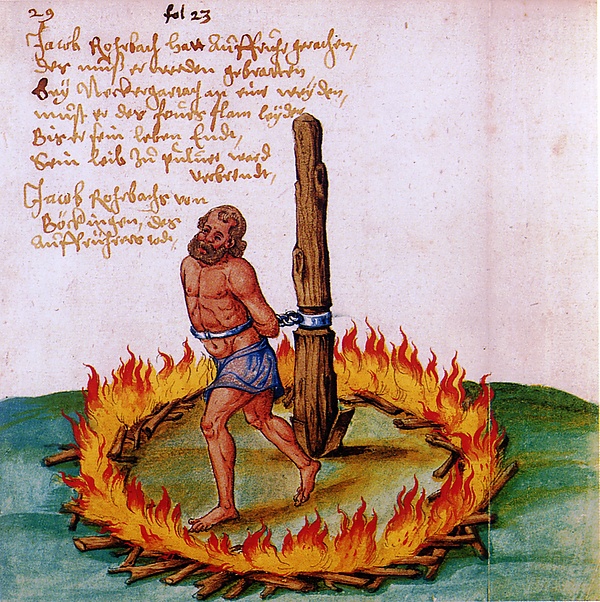 29
fol 23
Jacob Rohrbach hatt Auffruhr gemachen,
Des muß er werden gebratten
Bey Neckergartach an eine weyden,
must er des feurs flam leyden
Bis er sein leben Ende,
Sein leib Zu puluer ward
verbrendt,
Jacob Rohrbachs von
Böckingen, des
Auffrührers